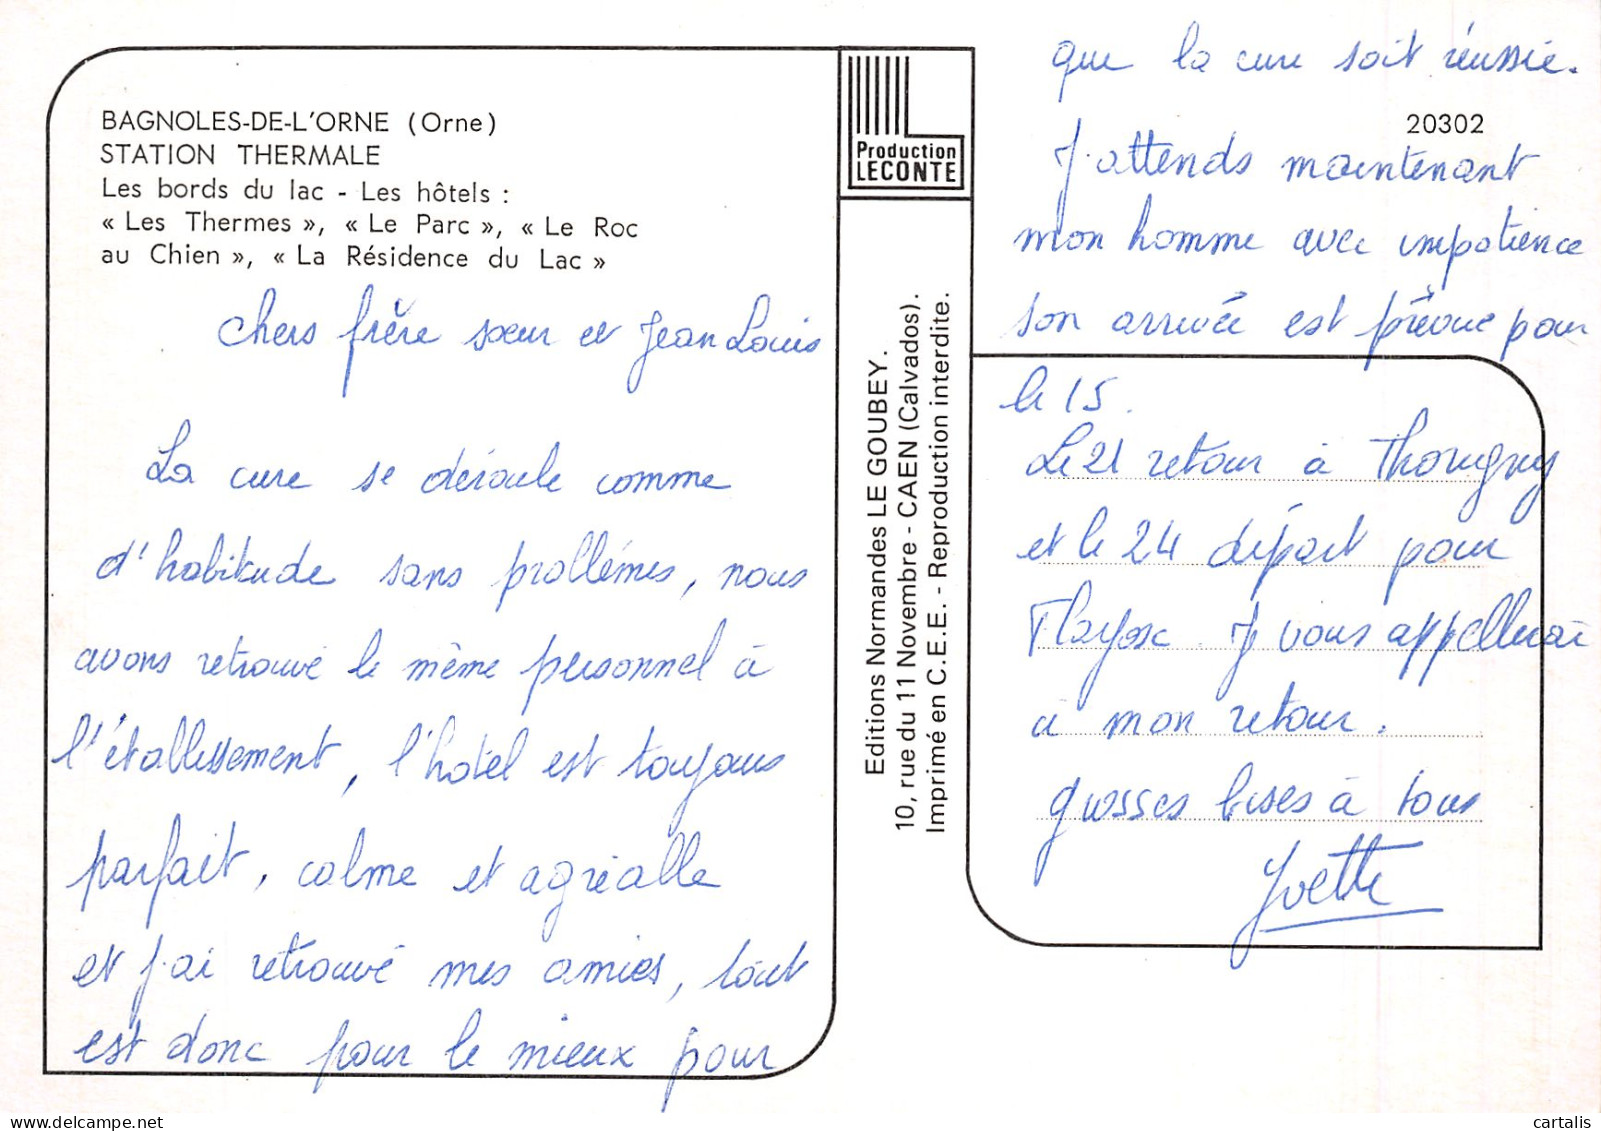 BAGNOLES-DE-L'ORNE (Orne)
STATION THERMALE
Les bords du lac - Les hôtels :
« Les Thermes », « Le Parc », « Le Roc
au Chien », « La Résidence du Lac »
Chers frère sœur et Jean Louis
La cure se déroule comme
d'habitude sans problèmes, nous
avons retrouvé le même personnel à
l'établissement, l'hôtel est toujours
parfait, calme et agréable
et j'ai retrouvé mes amies, tout
est donc pour le mieux pour
Production
LECONTE
Editions Normandes LE GOUBEY.
10, rue du 11 Novembre - CAEN (Calvados).
Imprimé en C.E.E. - Reproduction interdite.
que la cure soit réussie.
20302
J'attends maintenant
mon homme avec impatience
son arrivée est prévue pour
le 15.
Le 21 retour à Thorigny
et le 24 départ pour
Flayosc. Je vous appellerai
à mon retour.
grosses bises à tous
Yvette
delcampe.net
cartalis